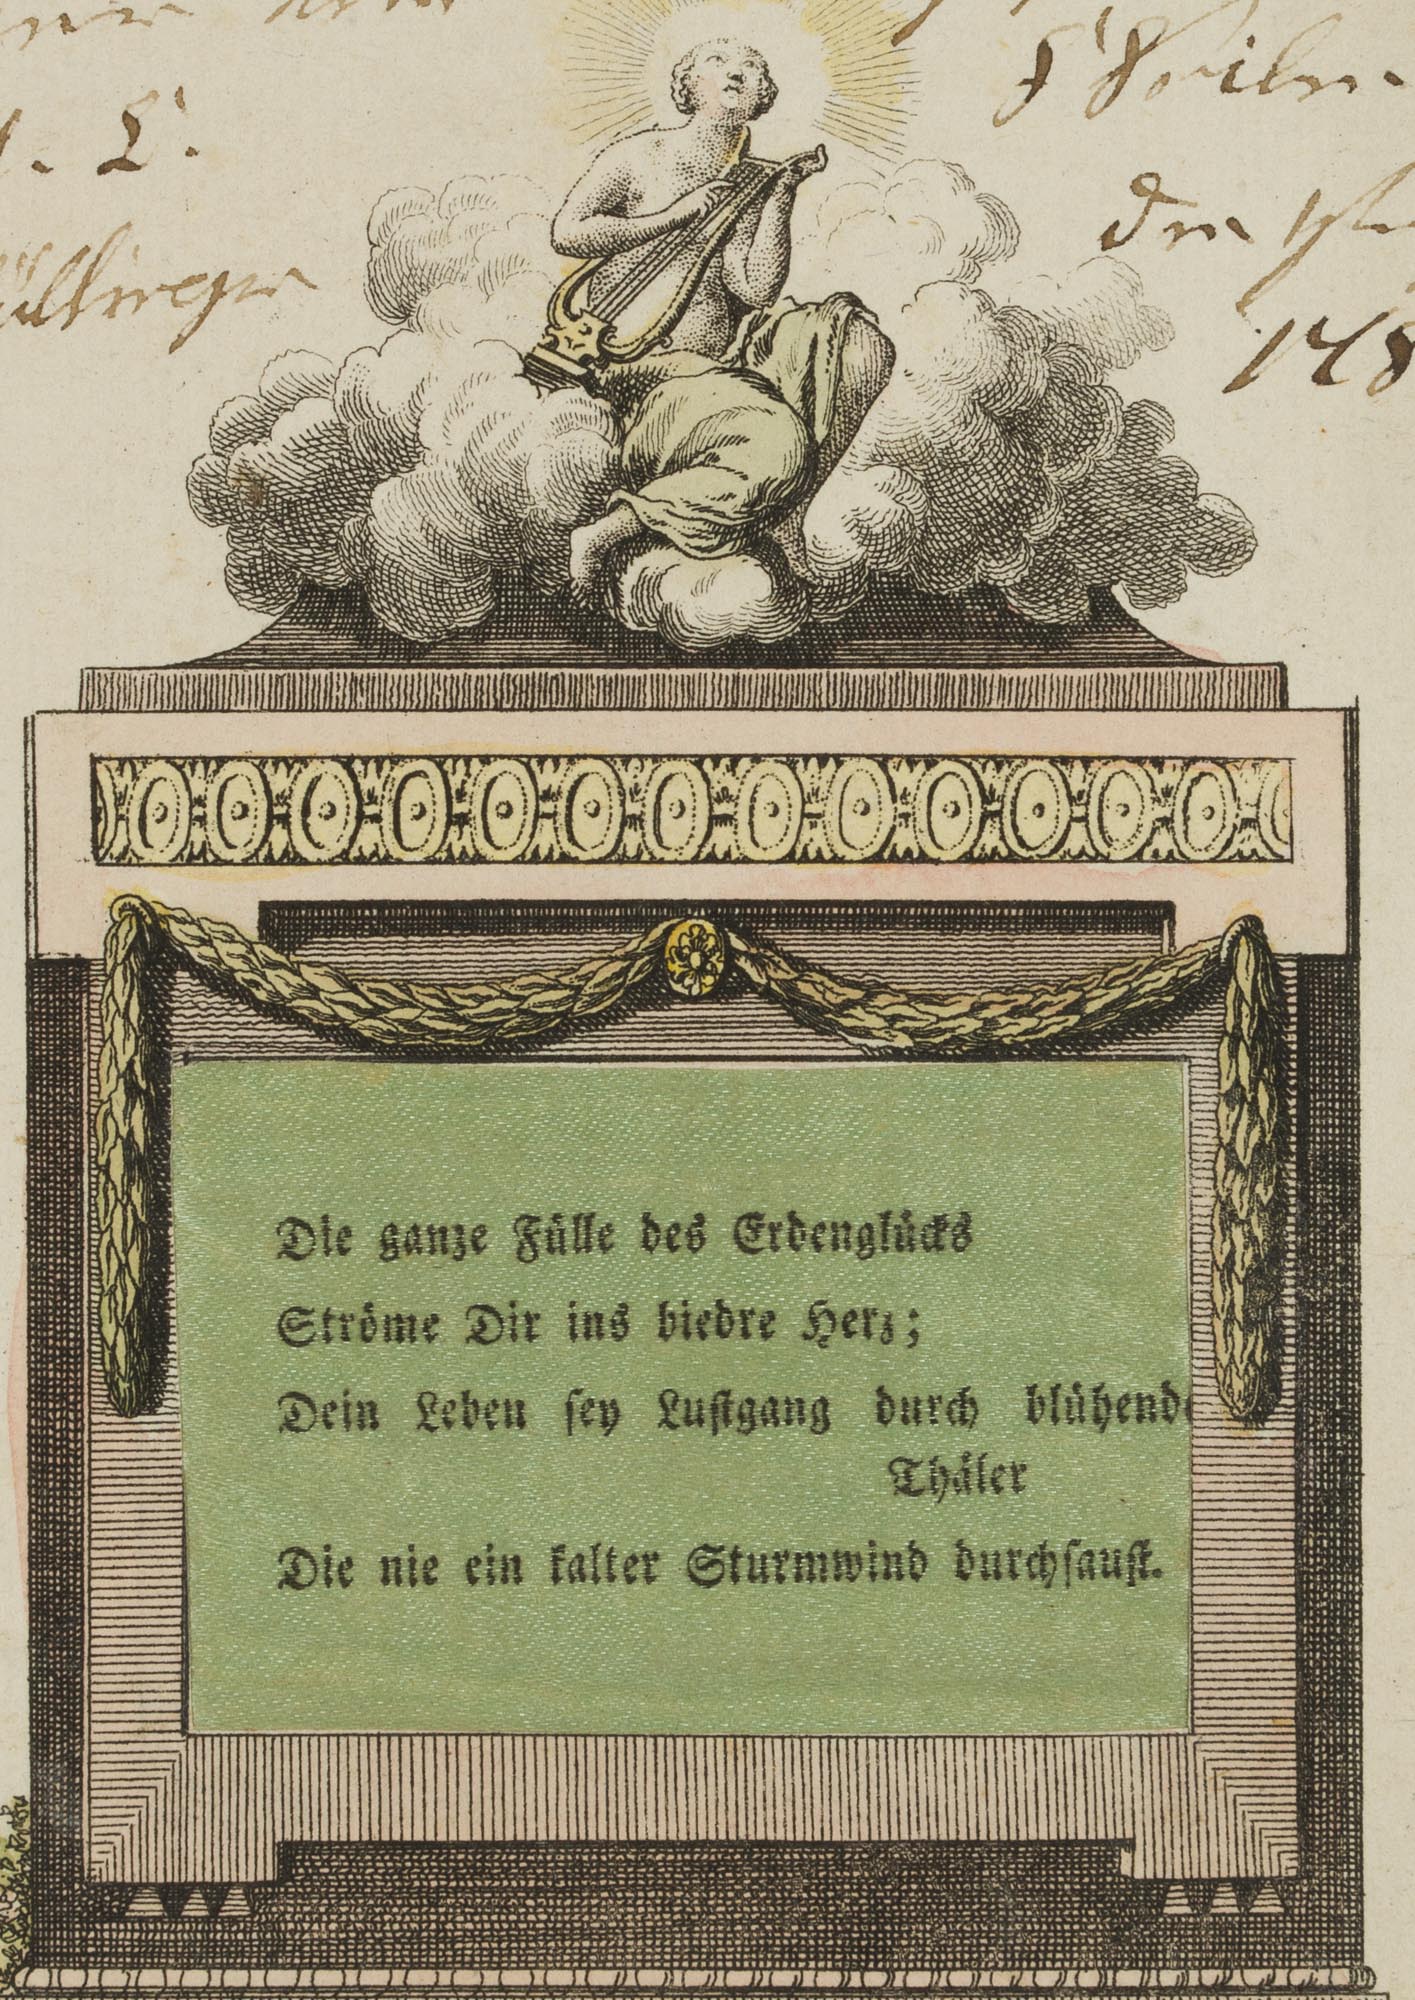 L.
den
178
Die ganze Fülle des Erdenglücks
Ströme Dir ins biedre Herz;
Dein Leben sey Lustgang durch blühende
Thäler
Die nie ein kalter Sturmwind durchsaust.